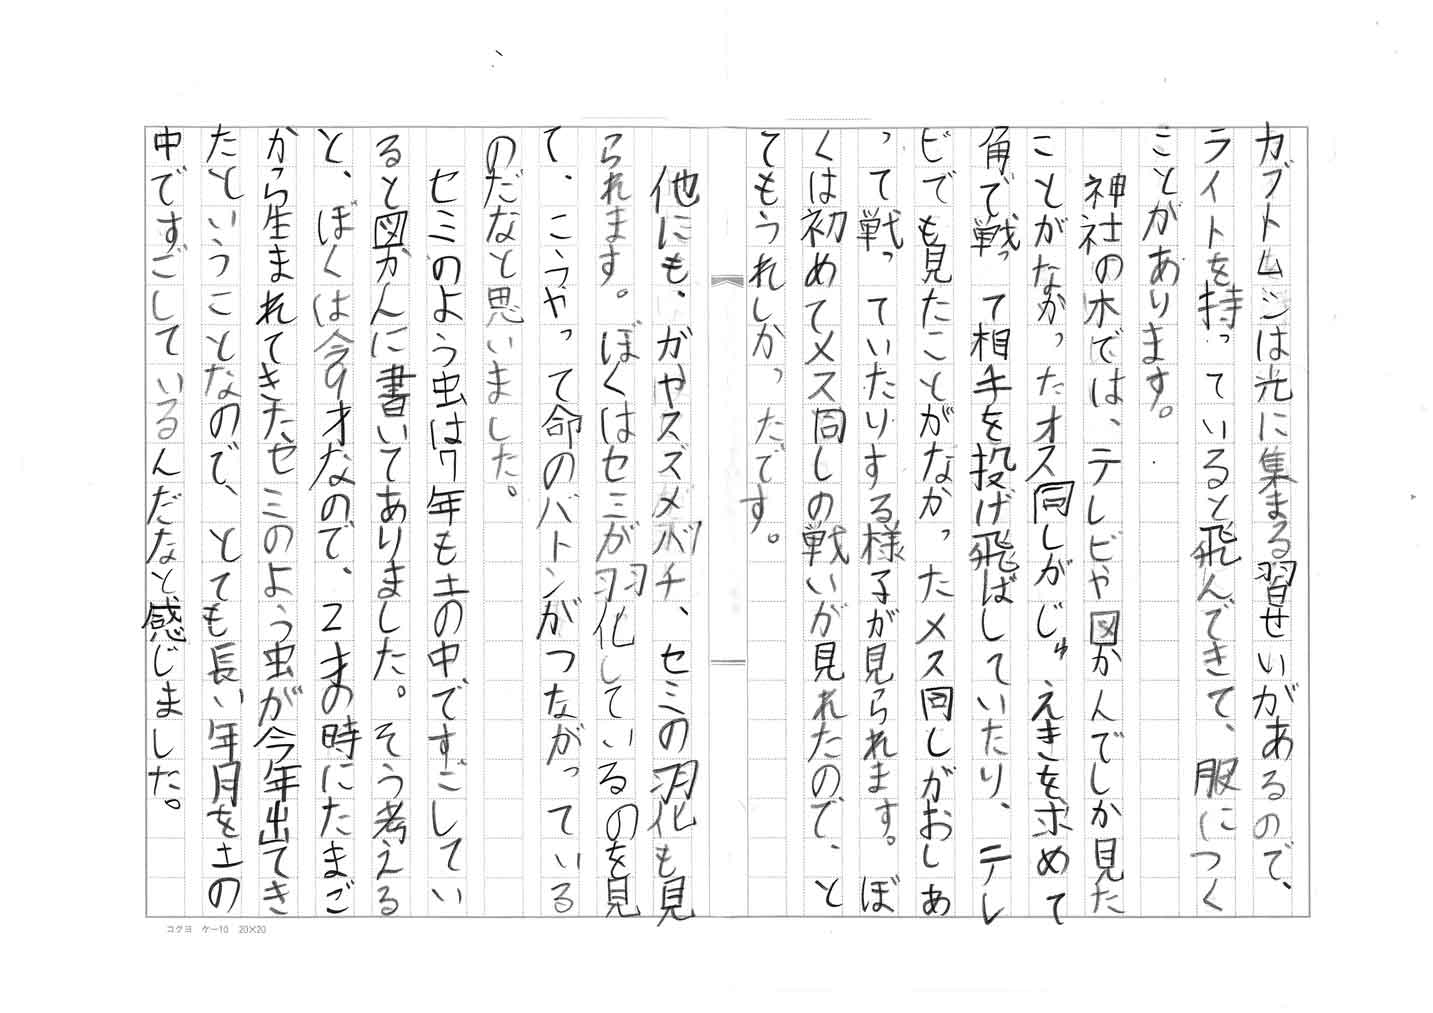 カブトムシは光に集まる習せいがあるので、
ライトを持っていると飛んできて、服につく
ことがあります。
神社の木では、テレビや図かんでしか見た
ことがなかったオス同しがじゅえきを求めて
角で戦って相手を投げ飛ばしていたり、テレ
ビでも見たことがなかったメス同しがおしあ
って戦っていたりする様子が見られます。ぼ
くは初めてメス同しの戦いが見れたので、と
てもうれしかったです。
他にも、ガやスズメバチ、セミの羽化も見
られます。ぼくはセミが羽化しているのを見
て、こうやって命のバトンがつながっている
のだなと思いました。
セミのよう虫は7年も土の中ですごしてい
ると図かんに書いてありました。そう考える
と、ぼくは今9才なので、2才の時にたまご
から生まれてきたセミのよう虫が今年出てき
たということなので、とても長い年月を土の
中ですごしているんだなと感じました。
コクヨ ケー10 20×20